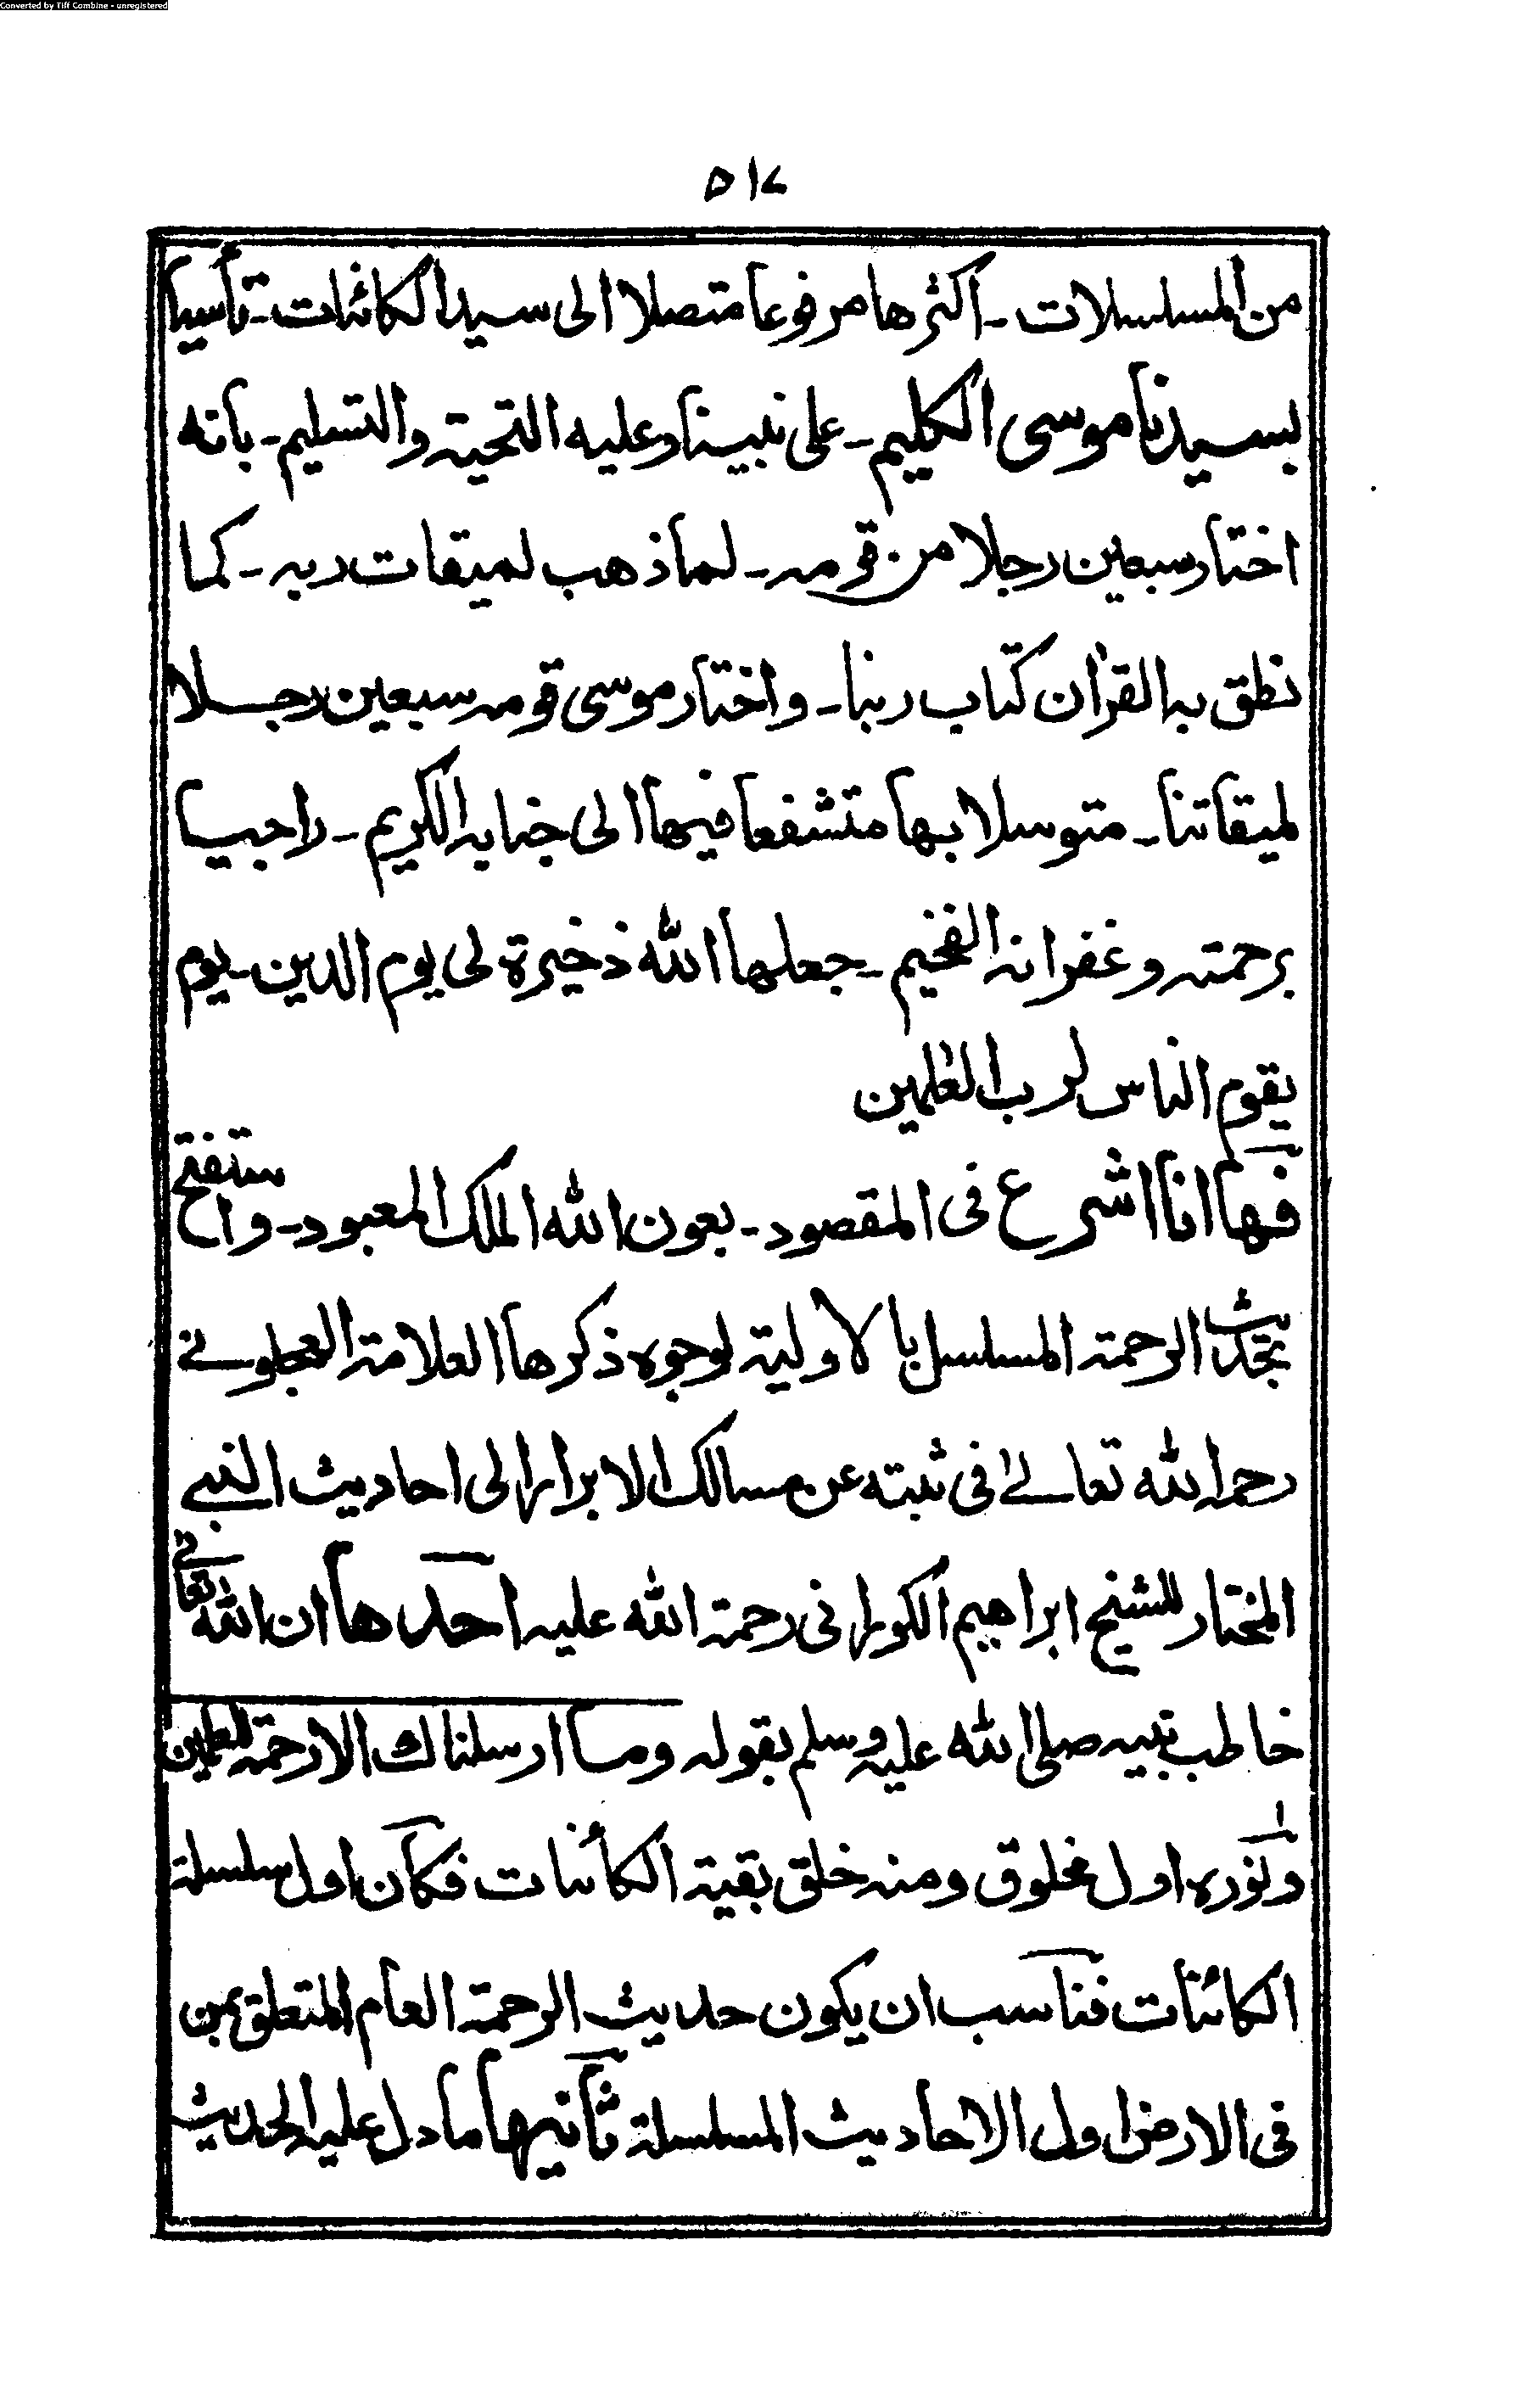 Converted by Tiff Combine - unregistered
٥١٧
من المسلسلات ـ اكثرها مرفوعا متصلا الى سيد الكائنات ـ تأسيا
بسيدنا موسى الكليم ـ على نبينا وعليه التحية والتسليم ـ بانه
اختار سبعين رجلا من قومه ـ لما ذهب لميقات ربه ـ كما
نطق به القرأن كتاب ربنا ـ واختار موسى قومه سبعين رجلا
لميقاتنا ـ متوسلا بها متشفعا فيها الى جنابه الكريم ـ راجيا
برحمته وغفرانه الفخيم ـ جعلها الله ذخيرة لى يوم الدين ـ يوم
يقوم الناس لرب العلمين
فها انا اشرع فى المقصود ـ بعون الله الملك المعبود ـ واستفتح
بحديث الرحمة المسلسل بالاولية لوجوه ذكرها العلامة العجلونے
رحمه الله تعالےٰ فى ثبته عن مسالك الابرار الى احاديث النبے
المختار للشيخ ابراهيم الكورانى رحمة الله عليه احدها ان الله تعالے
خاطب نبيه صلى الله عليه وسلم بقوله وما ارسلناك الا رحمة للعلمين
ونوره اول مخلوق ومنه خلق بقية الكائنات فكان اول سلسلة
الكائنات فناسب ان يكون حديث الرحمة العام المتعلق بمن
فى الارض اول الاحاديث المسلسلة ثانيها ما دل عليه الحديث